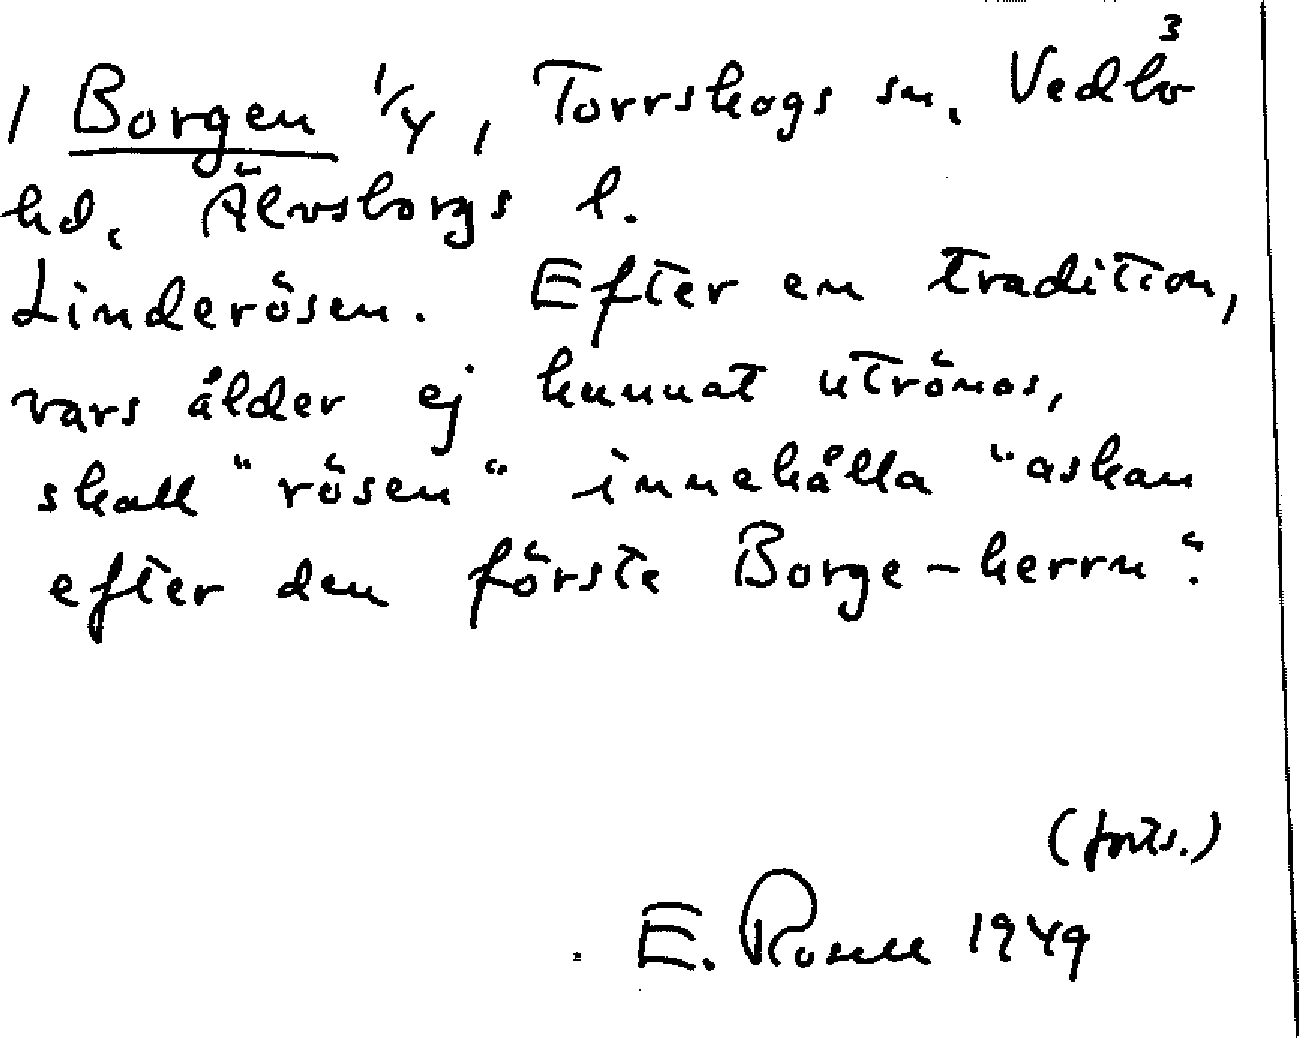 3
1 Borgen 1/4, Torrskogs sn. Vedbo
hd. Älvsborgs l.
Linderösen. Efter en tradition,
vars ålder ej kunnat utrönas,
skall "rösen" innehålla "askan
efter den förste Borge-herrn".
(forts.)
E. Rosell 1949